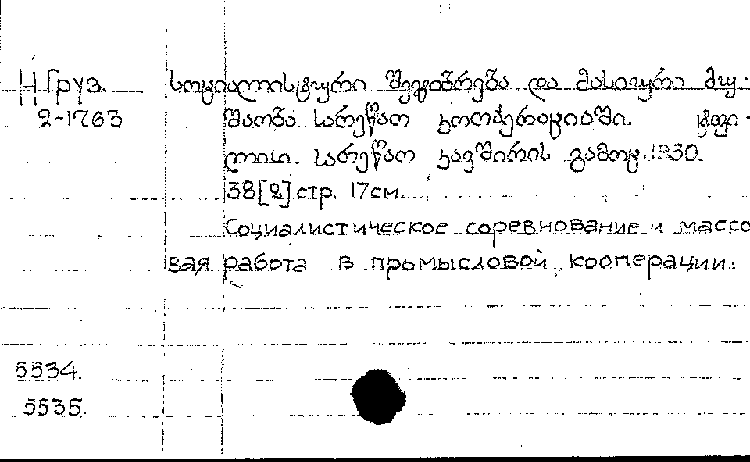 Н Груз. სოციალისტური შეჯიბრება და მასიური მუ-
2-1763 შაობა სარეწაო კოოპერაციაში. ტფი-
ლისი. სარეწაო კავშირის გამოც. 1930.
38[2] стр. 17см.
Социалистическое соревнование и массо
вая работа в промысловой кооперации.
5534.
5535.